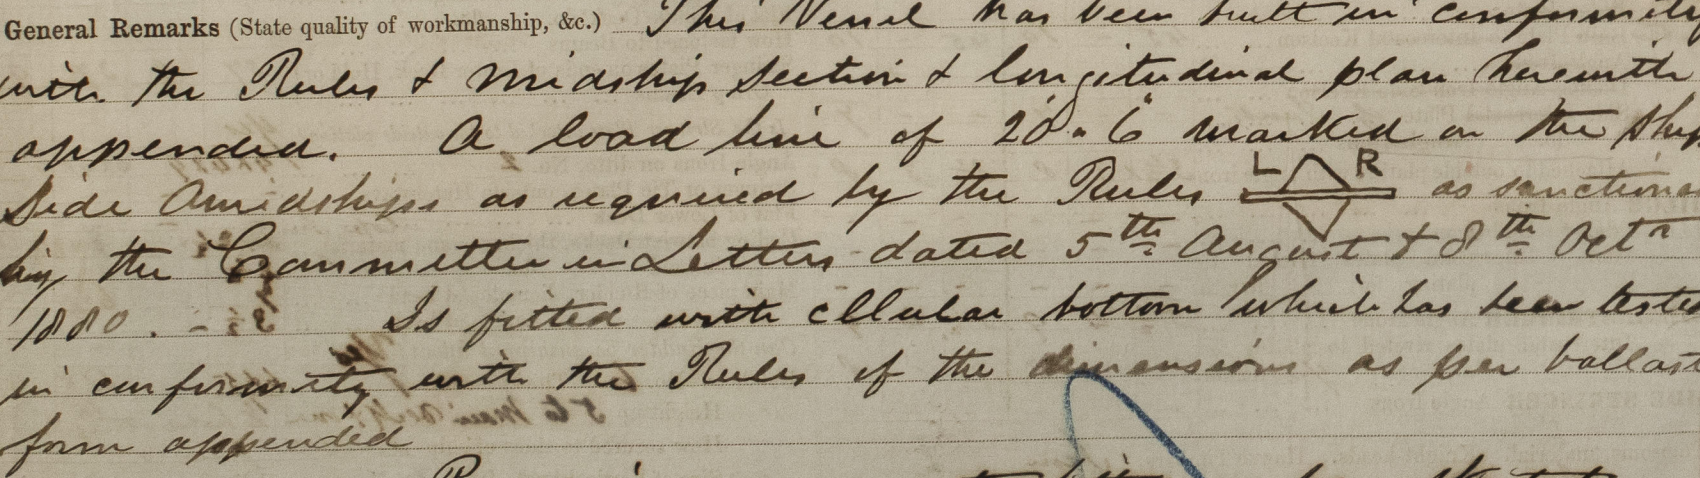 General Remarks (State quality of workmanship, &c.) This Vessel has been built in conformity
with the Rules & Midship Section & longitudinal plan herewith
appended. A load line of 20'.6" marked on the Ship
Side Amidships as required by the Rules L R as sanctioned
by the Committee in Letters dated 5th August & 8th Octr
1880. Is fitted with cllular bottom which has been tested
in conformity with the Rules of the dimensions as per ballast
form appended